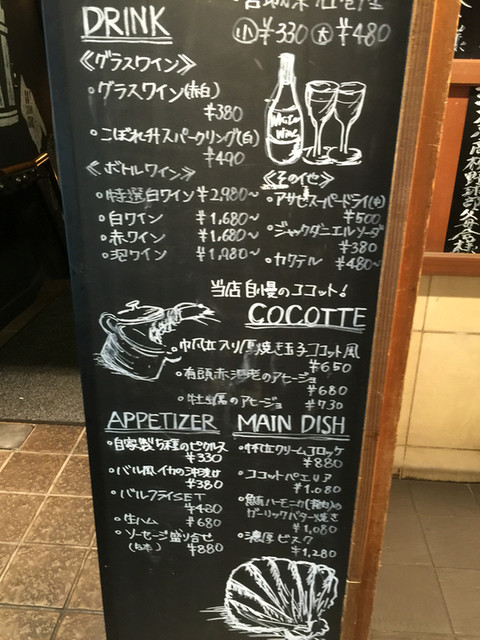 DRINK
小 ¥330 大 ¥480
≪グラスワイン≫
・グラスワイン(赤白)
¥380
・こぼれ升スパークリング(白)
¥490
≪ボトルワイン≫
・特選白ワイン ¥2,980~
・白ワイン ¥1,680~
・赤ワイン ¥1,680~
・泡ワイン ¥1,980~
≪その他≫
・アサヒスーパードライ(中)
¥500
・ジャックダニエルソーダ
¥380
・カクテル ¥480~
当店自慢のココット!
COCOTTE
・帆立入り厚焼き玉子ココット風
¥650
・有頭赤海老のアヒージョ
¥680
・牡蠣のアヒージョ ¥730
APPETIZER
・自家製5種のピクルス
¥330
・バル風イカの沖漬け
¥380
・バルフライSET
¥480
・生ハム ¥680
・ソーセージ盛り合せ
¥880
MAIN DISH
・帆立クリームコロッケ
¥880
・ココットパエリア
¥1,080
ガーリックバター焼き
¥1,080
・濃厚ビスク
¥1,280